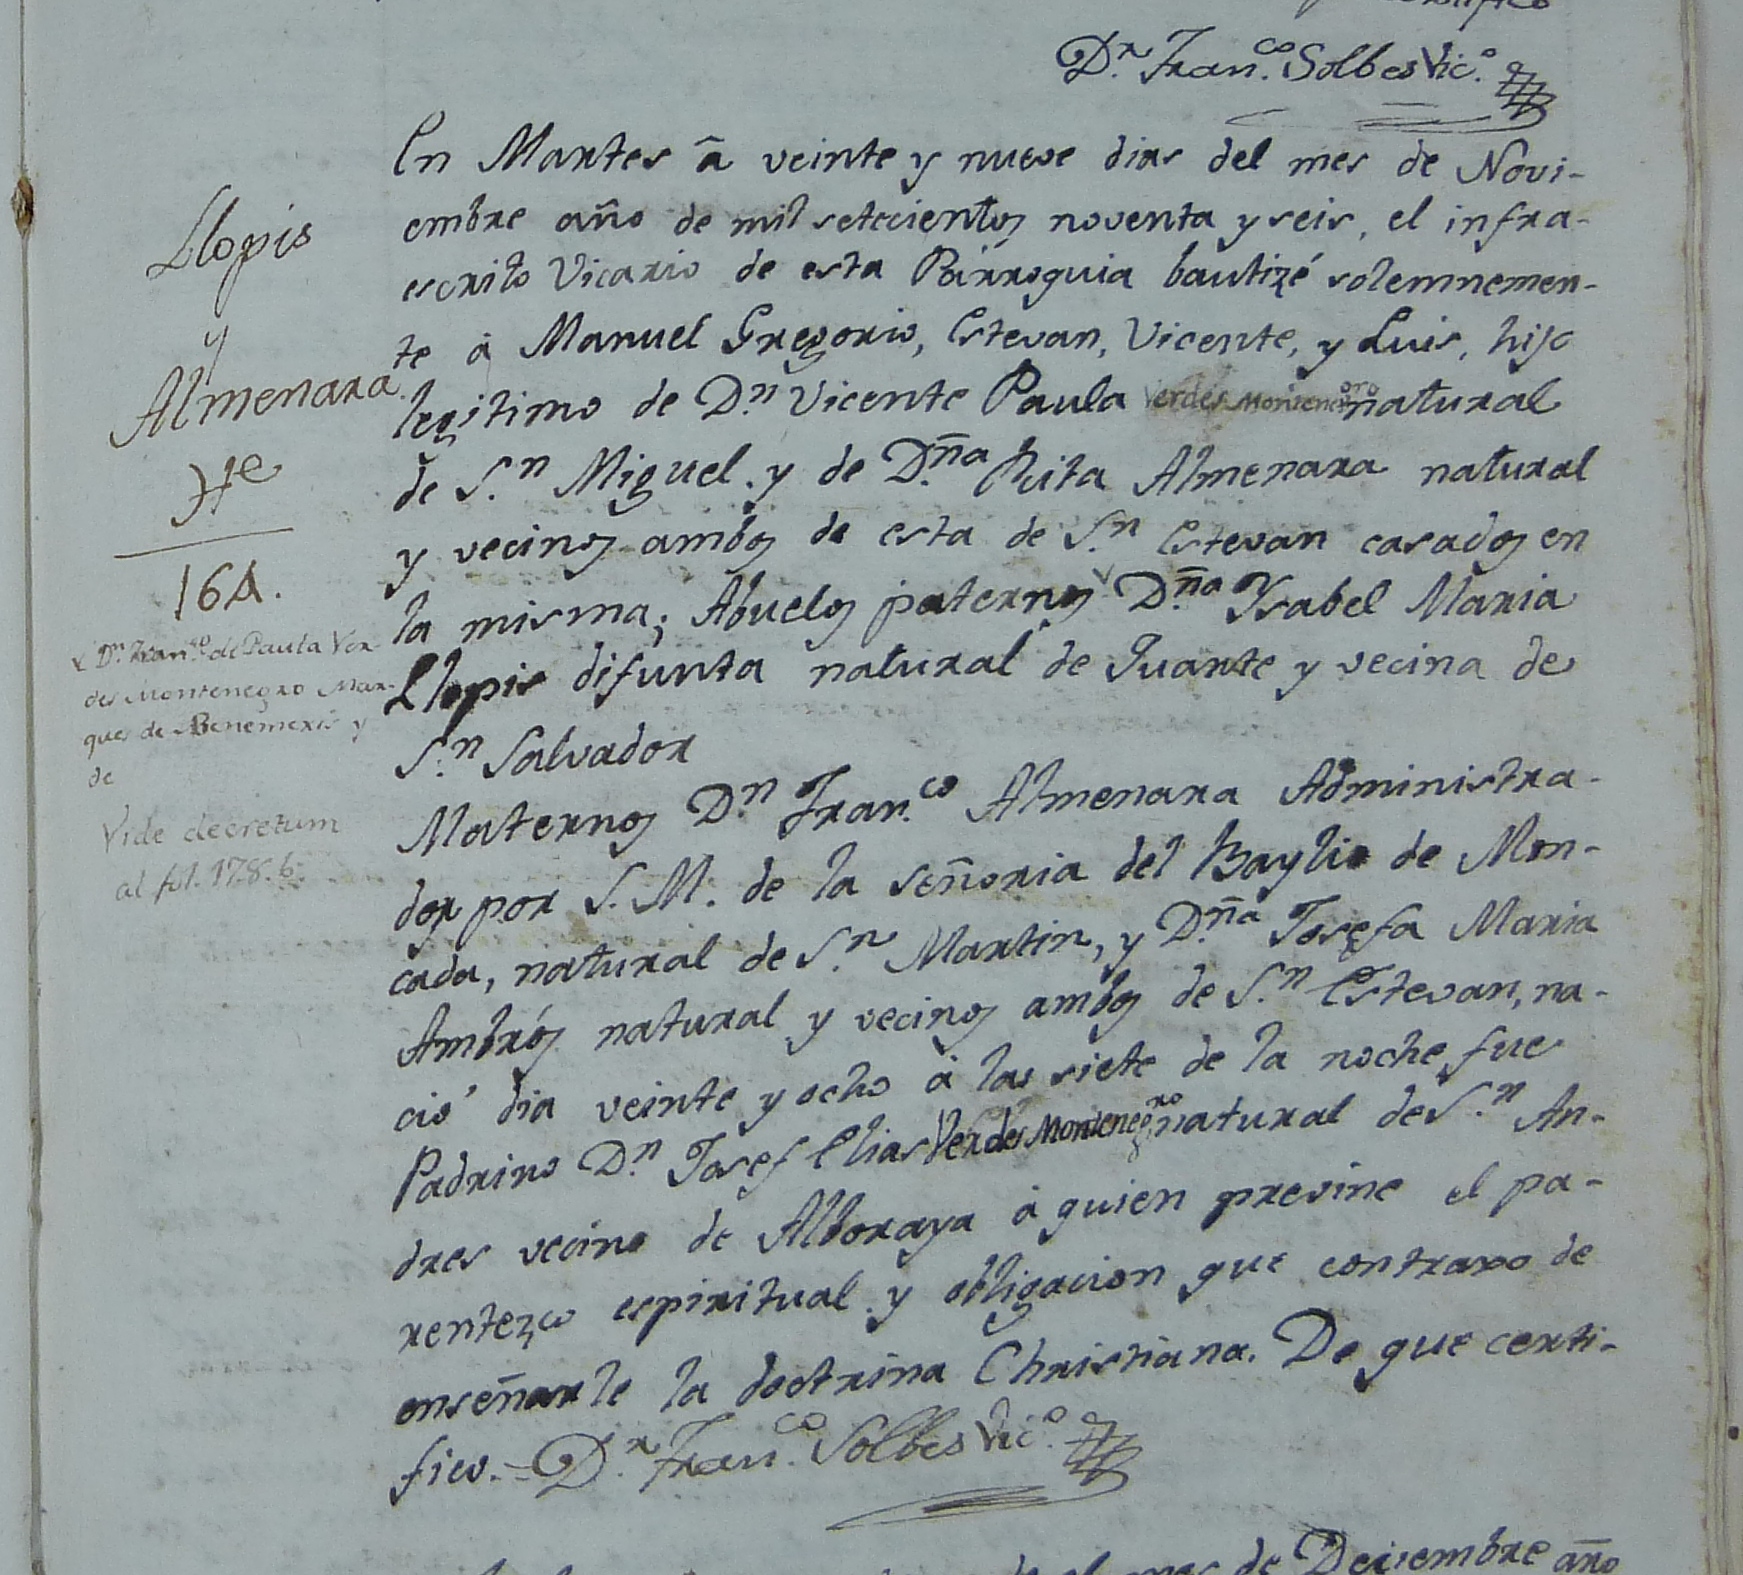 Dr. Franco. Solbes Vico.
En Martes â veinte y nueve dias del mes de Novi-
embre año de mil setecientos noventa y seis, el infra-
escrito Vicario de esta Parroquia bautizé solemnemen-
te á Manuel Gregorio, Estevan, Vicente, y Luis, hijo
legitimo de Dn. Vicente Paula Verdes Montenegro natural
de Sn. Miguel. y de Dña. Rita Almenara natural
y vecinos ambos de esta de Sn. Estevan casados en
la misma; Abuelos paternos v Dña. Ysabel Maria
Llopis difunta natural de Quarte y vecina de
Sn. Salvador
Maternos Dn. Franco. Almenara Administra-
dor por S. M. de la señoria del Baylio de Mon-
cada, natural de Sn. Martin, y Dña. Josefa Maria
Ambrós natural y vecinos ambos de Sn. Estevan, na-
ció dia veinte y ocho á las siete de la noche, fue
Padrino Dn. Josef Elias Verdes Montenegro natural de Sn. An-
dres vecino de Alboraya á quien previne el pa-
rentezco espiritual y obligacion que contraxo de
enseñarle la doctrina Christiana. De que certi-
fico. Dr. Franco. Solbes Vico.
Llopis
y
Almenara
164.
v Dn. Franco. de Paula Ver-
des Montenegro Mar-
ques de Benemexis y
de
Vide decretum
al fol. 178. b.
mes de Deciembre año